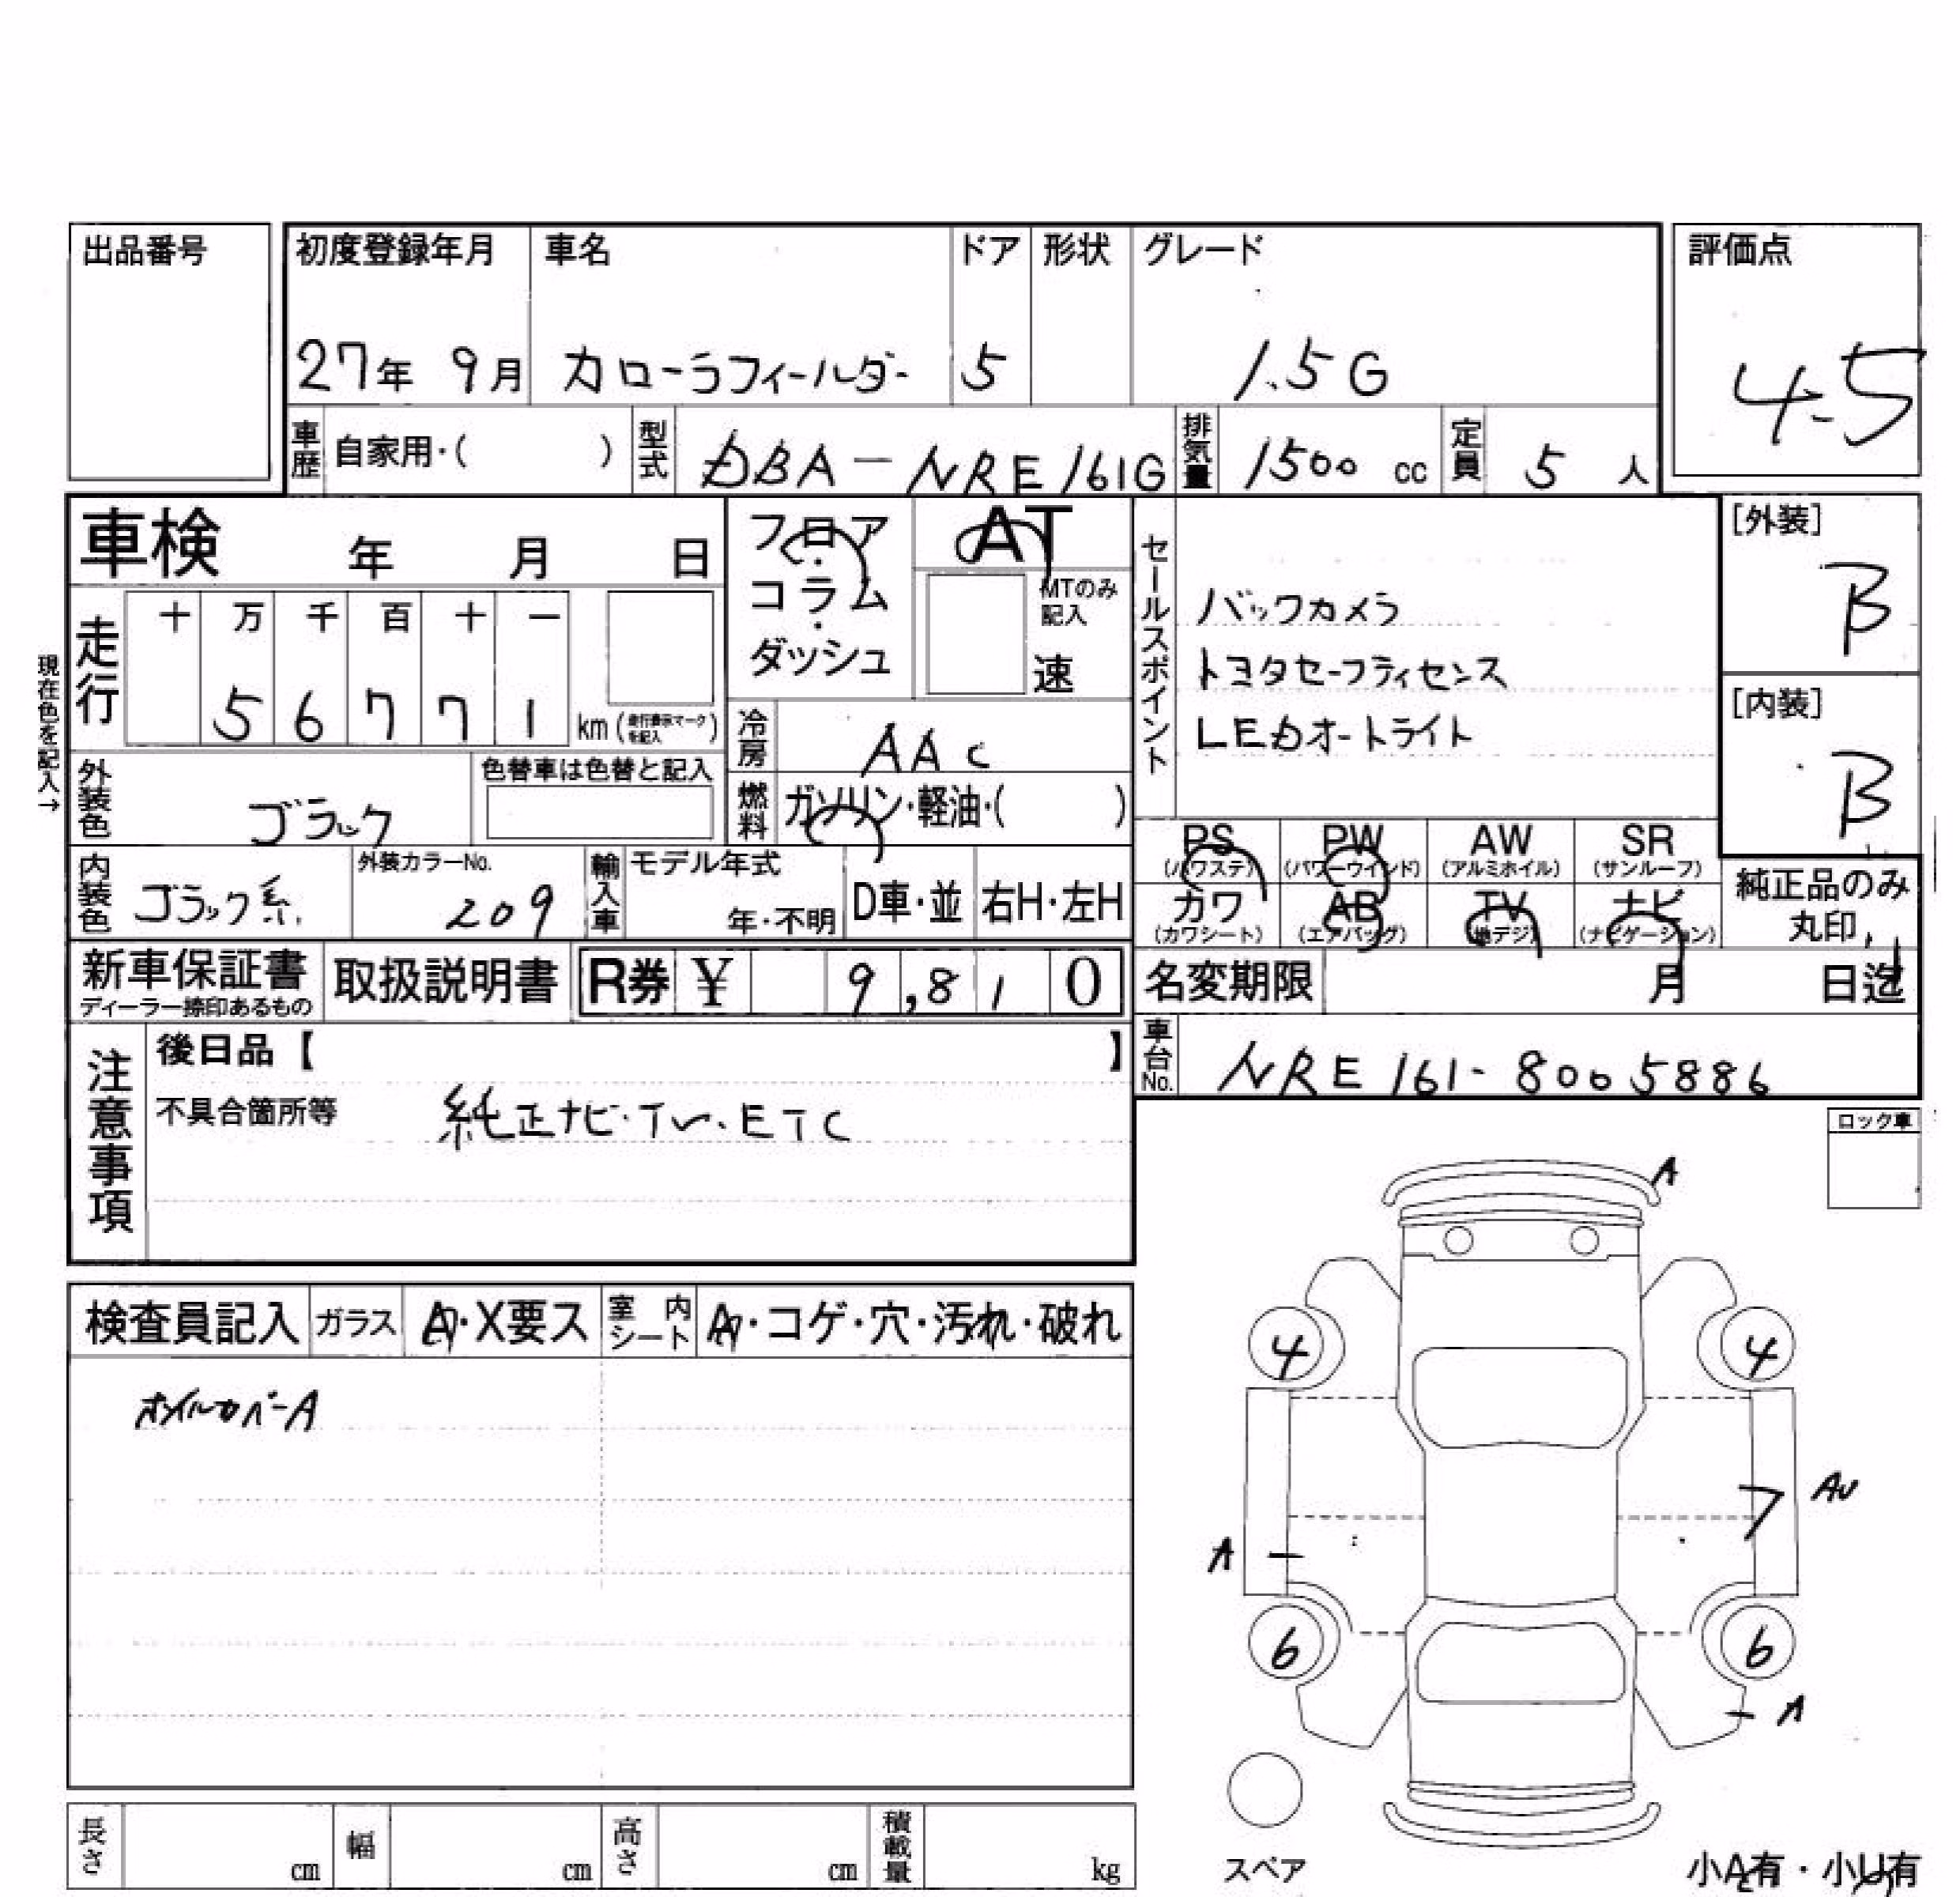 出品番号
初度登録年月 車名 ドア 形状 グレード
27年 9月 カローラフィールダー 5 1.5G
評価点
4.5
車歴 自家用・( ) 型式 DBA-NRE161G 排気量 1500 cc 定員 5 人
車検 年 月 日
フロア・コラム・ダッシュ
AT
MTのみ記入
速
現在色を記入→
走行 十 万 千 百 十 一
5 6 7 7 1 km (走行表示マークを記入)
冷房 AAC
燃料 ガソリン・軽油・( )
外装色 ブラック
色替車は色替と記入
内装色 ブラック系
外装カラーNo.
209
輸入車 モデル年式
年・不明
D車・並 右H・左H
セールスポイント
バックカメラ
トヨタセーフティセンス
LEDオートライト
[外装]
B
[内装]
B
PS (パワステ) PW (パワーウインド) AW (アルミホイル) SR (サンルーフ)
カワ (カワシート) AB (エアバッグ) TV (地デジ) ナビ (ナビゲーション)
純正品のみ
丸印
新車保証書
ディーラー捺印あるもの
取扱説明書
R券 ¥ 9,810
名変期限 月 日迄
車台No. NRE161-8005886
注意事項
後日品【 】
不具合箇所等 純正ナビ・TV・ETC
ロック車
検査員記入 ガラス A・X要ス 室内シート A・コゲ・穴・汚れ・破れ
ホイルカバーA
A
4 4
AU
A
6 6
A
スペア
小A有・小U有
長さ cm 幅 cm 高さ cm 積載量 kg